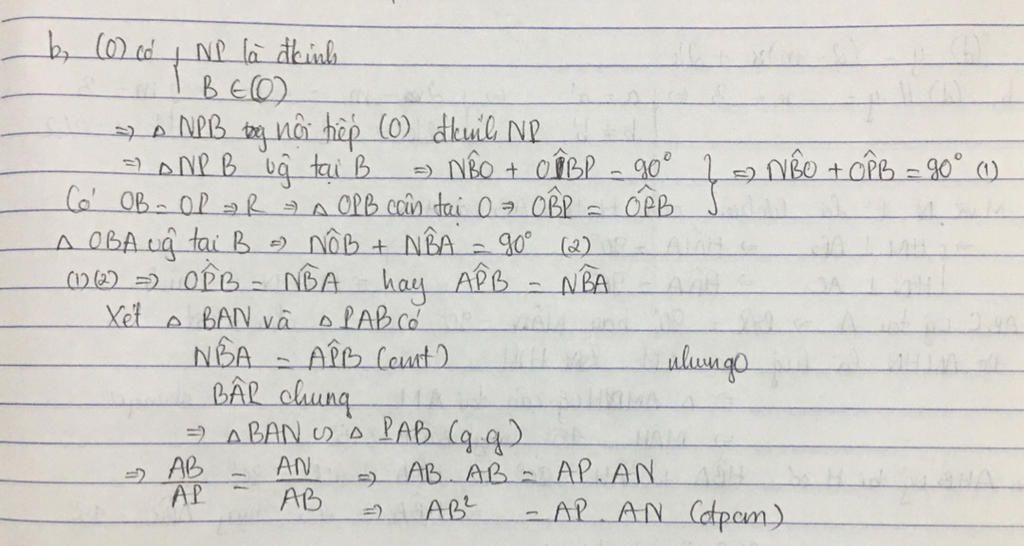 b, (O) có { NP là đkính
B ∈ (O)
⇒ △ NPB nội tiếp (O) đkính NP
⇒ △ NPB vg̃ tại B ⇒ NB̂O + OB̂P = 90° } ⇒ NB̂O + OP̂B = 90° (1)
Có OB = OP = R ⇒ △ OPB cân tại O ⇒ OB̂P = OP̂B
△ OBA vg̃ tại B ⇒ NÔB + NB̂A = 90° (2)
(1)(2) ⇒ OP̂B = NB̂A hay AP̂B = NB̂A
Xét △ BAN và △ PAB có
NB̂A = AP̂B (cmt) nhung0
BÂP chung
⇒ △ BAN ∽ △ PAB (g.g)
⇒ AB/AP = AN/AB ⇒ AB. AB = AP. AN
⇒ AB² = AP. AN (đpcm)